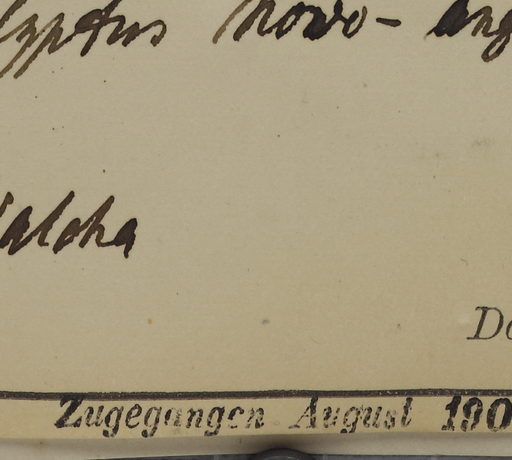 lyptus novo- ang
alcha
Do
Zugegangen August 190